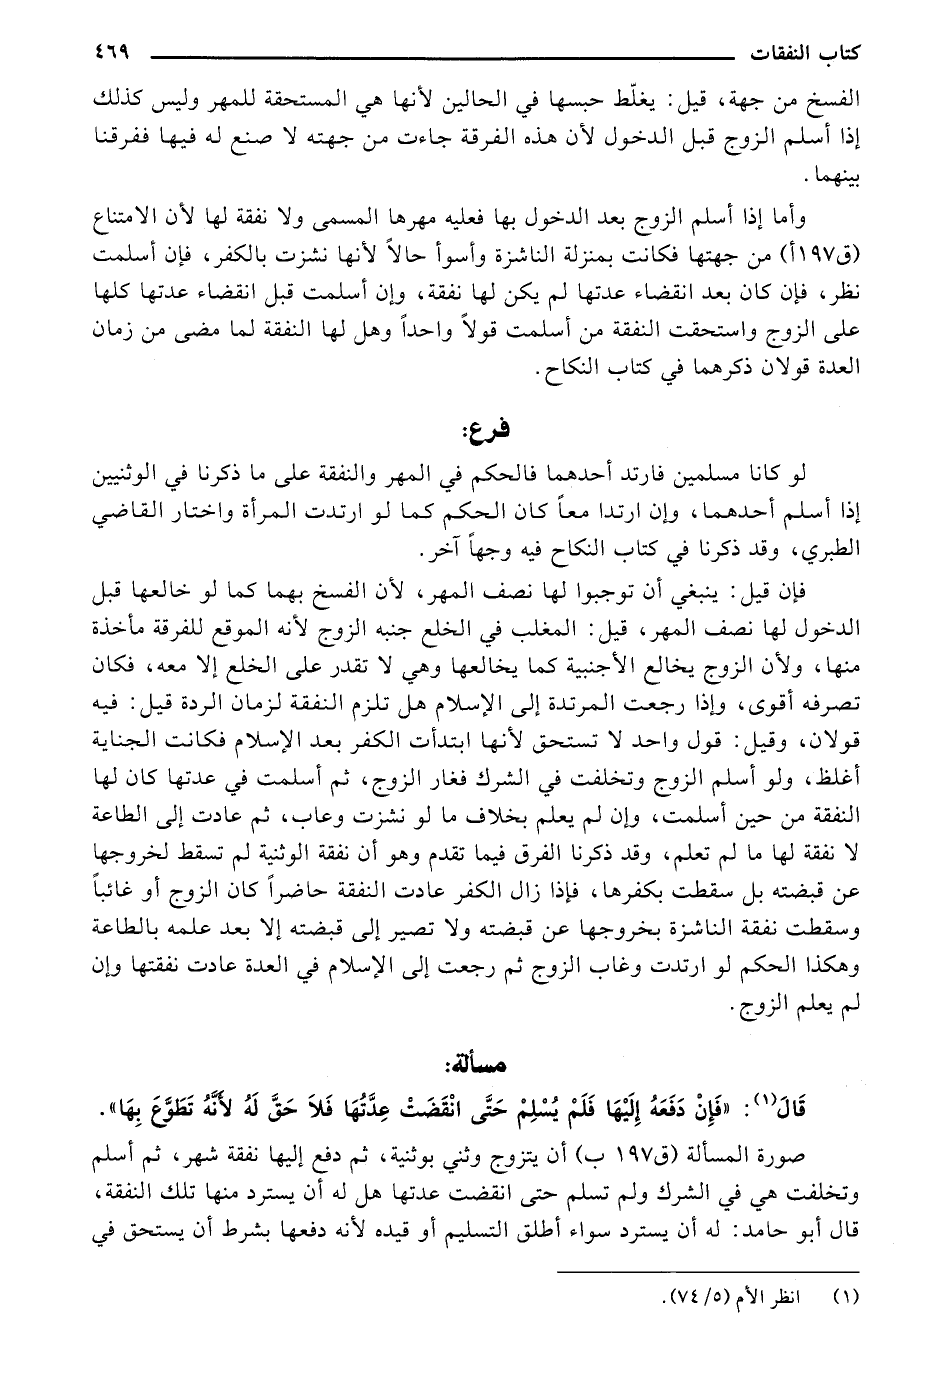 كتاب النفقات ٤٦٩
الفسخ من جهة، قيل: يغلّط حبسها في الحالين لأنها هي المستحقة للمهر وليس كذلك
إذا أسلم الزوج قبل الدخول لأن هذه الفرقة جاءت من جهته لا صنع له فيها ففرقنا
بينهما.
وأما إذا أسلم الزوج بعد الدخول بها فعليه مهرها المسمى ولا نفقة لها لأن الامتناع
(ق١٩٧أ) من جهتها فكانت بمنزلة الناشزة وأسوأ حالاً لأنها نشزت بالكفر، فإن أسلمت
نظر، فإن كان بعد انقضاء عدتها لم يكن لها نفقة، وإن أسلمت قبل انقضاء عدتها كلها
على الزوج واستحقت النفقة من أسلمت قولاً واحداً وهل لها النفقة لما مضى من زمان
العدة قولان ذكرهما في كتاب النكاح.
فرع:
لو كانا مسلمين فارتد أحدهما فالحكم في المهر والنفقة على ما ذكرنا في الوثنيين
إذا أسلم أحدهما، وإن ارتدا معاً كان الحكم كما لو ارتدت المرأة واختار القاضي
الطبري، وقد ذكرنا في كتاب النكاح فيه وجهاً آخر.
فإن قيل: ينبغي أن توجبوا لها نصف المهر، لأن الفسخ بهما كما لو خالعها قبل
الدخول لها نصف المهر، قيل: المغلب في الخلع جنبه الزوج لأنه الموقع للفرقة مأخذة
منها، ولأن الزوج يخالع الأجنبية كما يخالعها وهي لا تقدر على الخلع إلا معه، فكان
تصرفه أقوى، وإذا رجعت المرتدة إلى الإسلام هل تلزم النفقة لزمان الردة قيل: فيه
قولان، وقيل: قول واحد لا تستحق لأنها ابتدأت الكفر بعد الإسلام فكانت الجناية
أغلظ، ولو أسلم الزوج وتخلفت في الشرك فغار الزوج، ثم أسلمت في عدتها كان لها
النفقة من حين أسلمت، وإن لم يعلم بخلاف ما لو نشزت وعاب، ثم عادت إلى الطاعة
لا نفقة لها ما لم تعلم، وقد ذكرنا الفرق فيما تقدم وهو أن نفقة الوثنية لم تسقط لخروجها
عن قبضته بل سقطت بكفرها، فإذا زال الكفر عادت النفقة حاضراً كان الزوج أو غائباً
وسقطت نفقة الناشزة بخروجها عن قبضته ولا تصير إلى قبضته إلا بعد علمه بالطاعة
وهكذا الحكم لو ارتدت وغاب الزوج ثم رجعت إلى الإسلام في العدة عادت نفقتها وإن
لم يعلم الزوج.
مسألة:
قَالَ(١): «فَإِنْ دَفَعَهُ إِلَيْهَا فَلَمْ يُسْلِمْ حَتَّى انْقَضَتْ عِدَّتُهَا فَلاَ حَقَّ لَهُ لأَنَّهُ تَطَوَّعَ بِهَا».
صورة المسألة (ق١٩٧ ب) أن يتزوج وثني بوثنية، ثم دفع إليها نفقة شهر، ثم أسلم
وتخلفت هي في الشرك ولم تسلم حتى انقضت عدتها هل له أن يسترد منها تلك النفقة،
قال أبو حامد: له أن يسترد سواء أطلق التسليم أو قيده لأنه دفعها بشرط أن يستحق في
(١) انظر الأم (٥/ ٧٤).